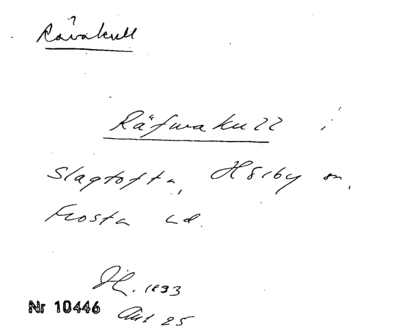 Rävakull
Räfwakull i
Slagtofta, Hörby sn,
Frosta hd.
1893
Nr 10446
25